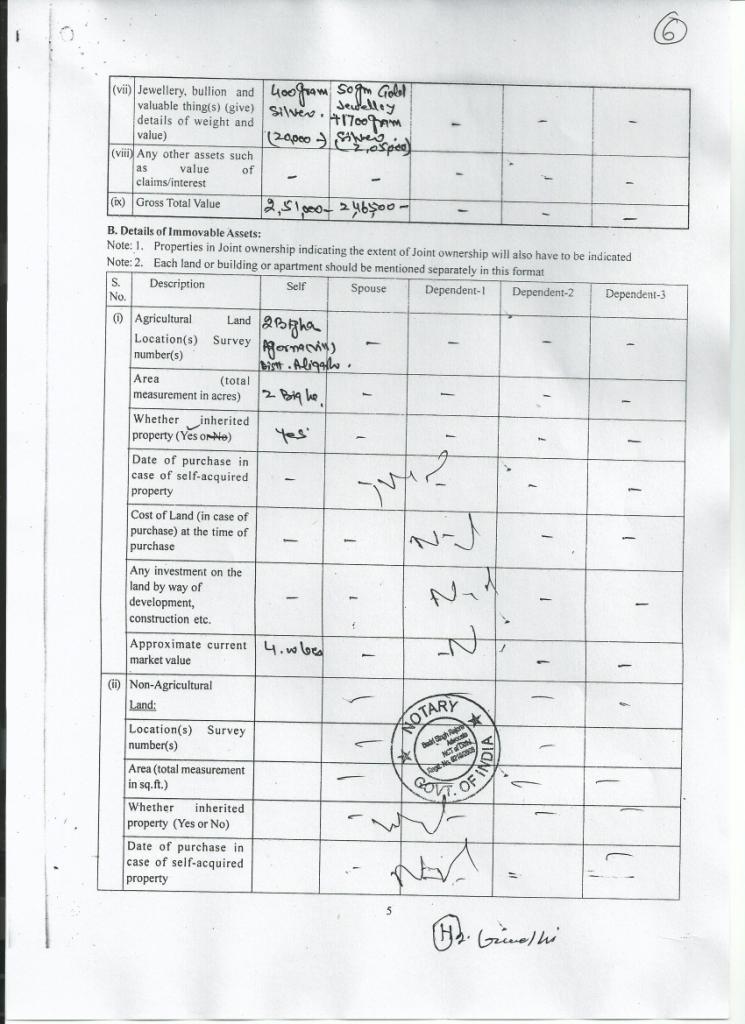 6
(vii) Jewellery, bullion and valuable thing(s) (give) details of weight and value) 400 gram Silver. (20,000 -) 50 gm Gold Jewelley +1700 gram Silver (2,05000) - - -
(viii) Any other assets such as value of claims/interest - - - - -
(ix) Gross Total Value 2,51,000- 2,46,500 - - - -
B. Details of Immovable Assets:
Note: 1. Properties in Joint ownership indicating the extent of Joint ownership will also have to be indicated
Note: 2. Each land or building or apartment should be mentioned separately in this format
S. No. Description Self Spouse Dependent-1 Dependent-2 Dependent-3
(i) Agricultural Land Location(s) Survey number(s) 2 Bigha Distt. Aligarh. - - - -
Area (total measurement in acres) 2 Bigha. - - - -
Whether inherited property (Yes or No) Yes - - - -
Date of purchase in case of self-acquired property - - - -
Cost of Land (in case of purchase) at the time of purchase - - - -
Any investment on the land by way of development, construction etc. - - - -
Approximate current market value - - -
(ii) Non-Agricultural Land: - - -
Location(s) Survey number(s) - -
Area (total measurement in sq.ft.) - - -
Whether inherited property (Yes or No) - - - -
Date of purchase in case of self-acquired property - = =
NOTARY
Advocate
NCT of Delhi
GOVT. OF INDIA
5